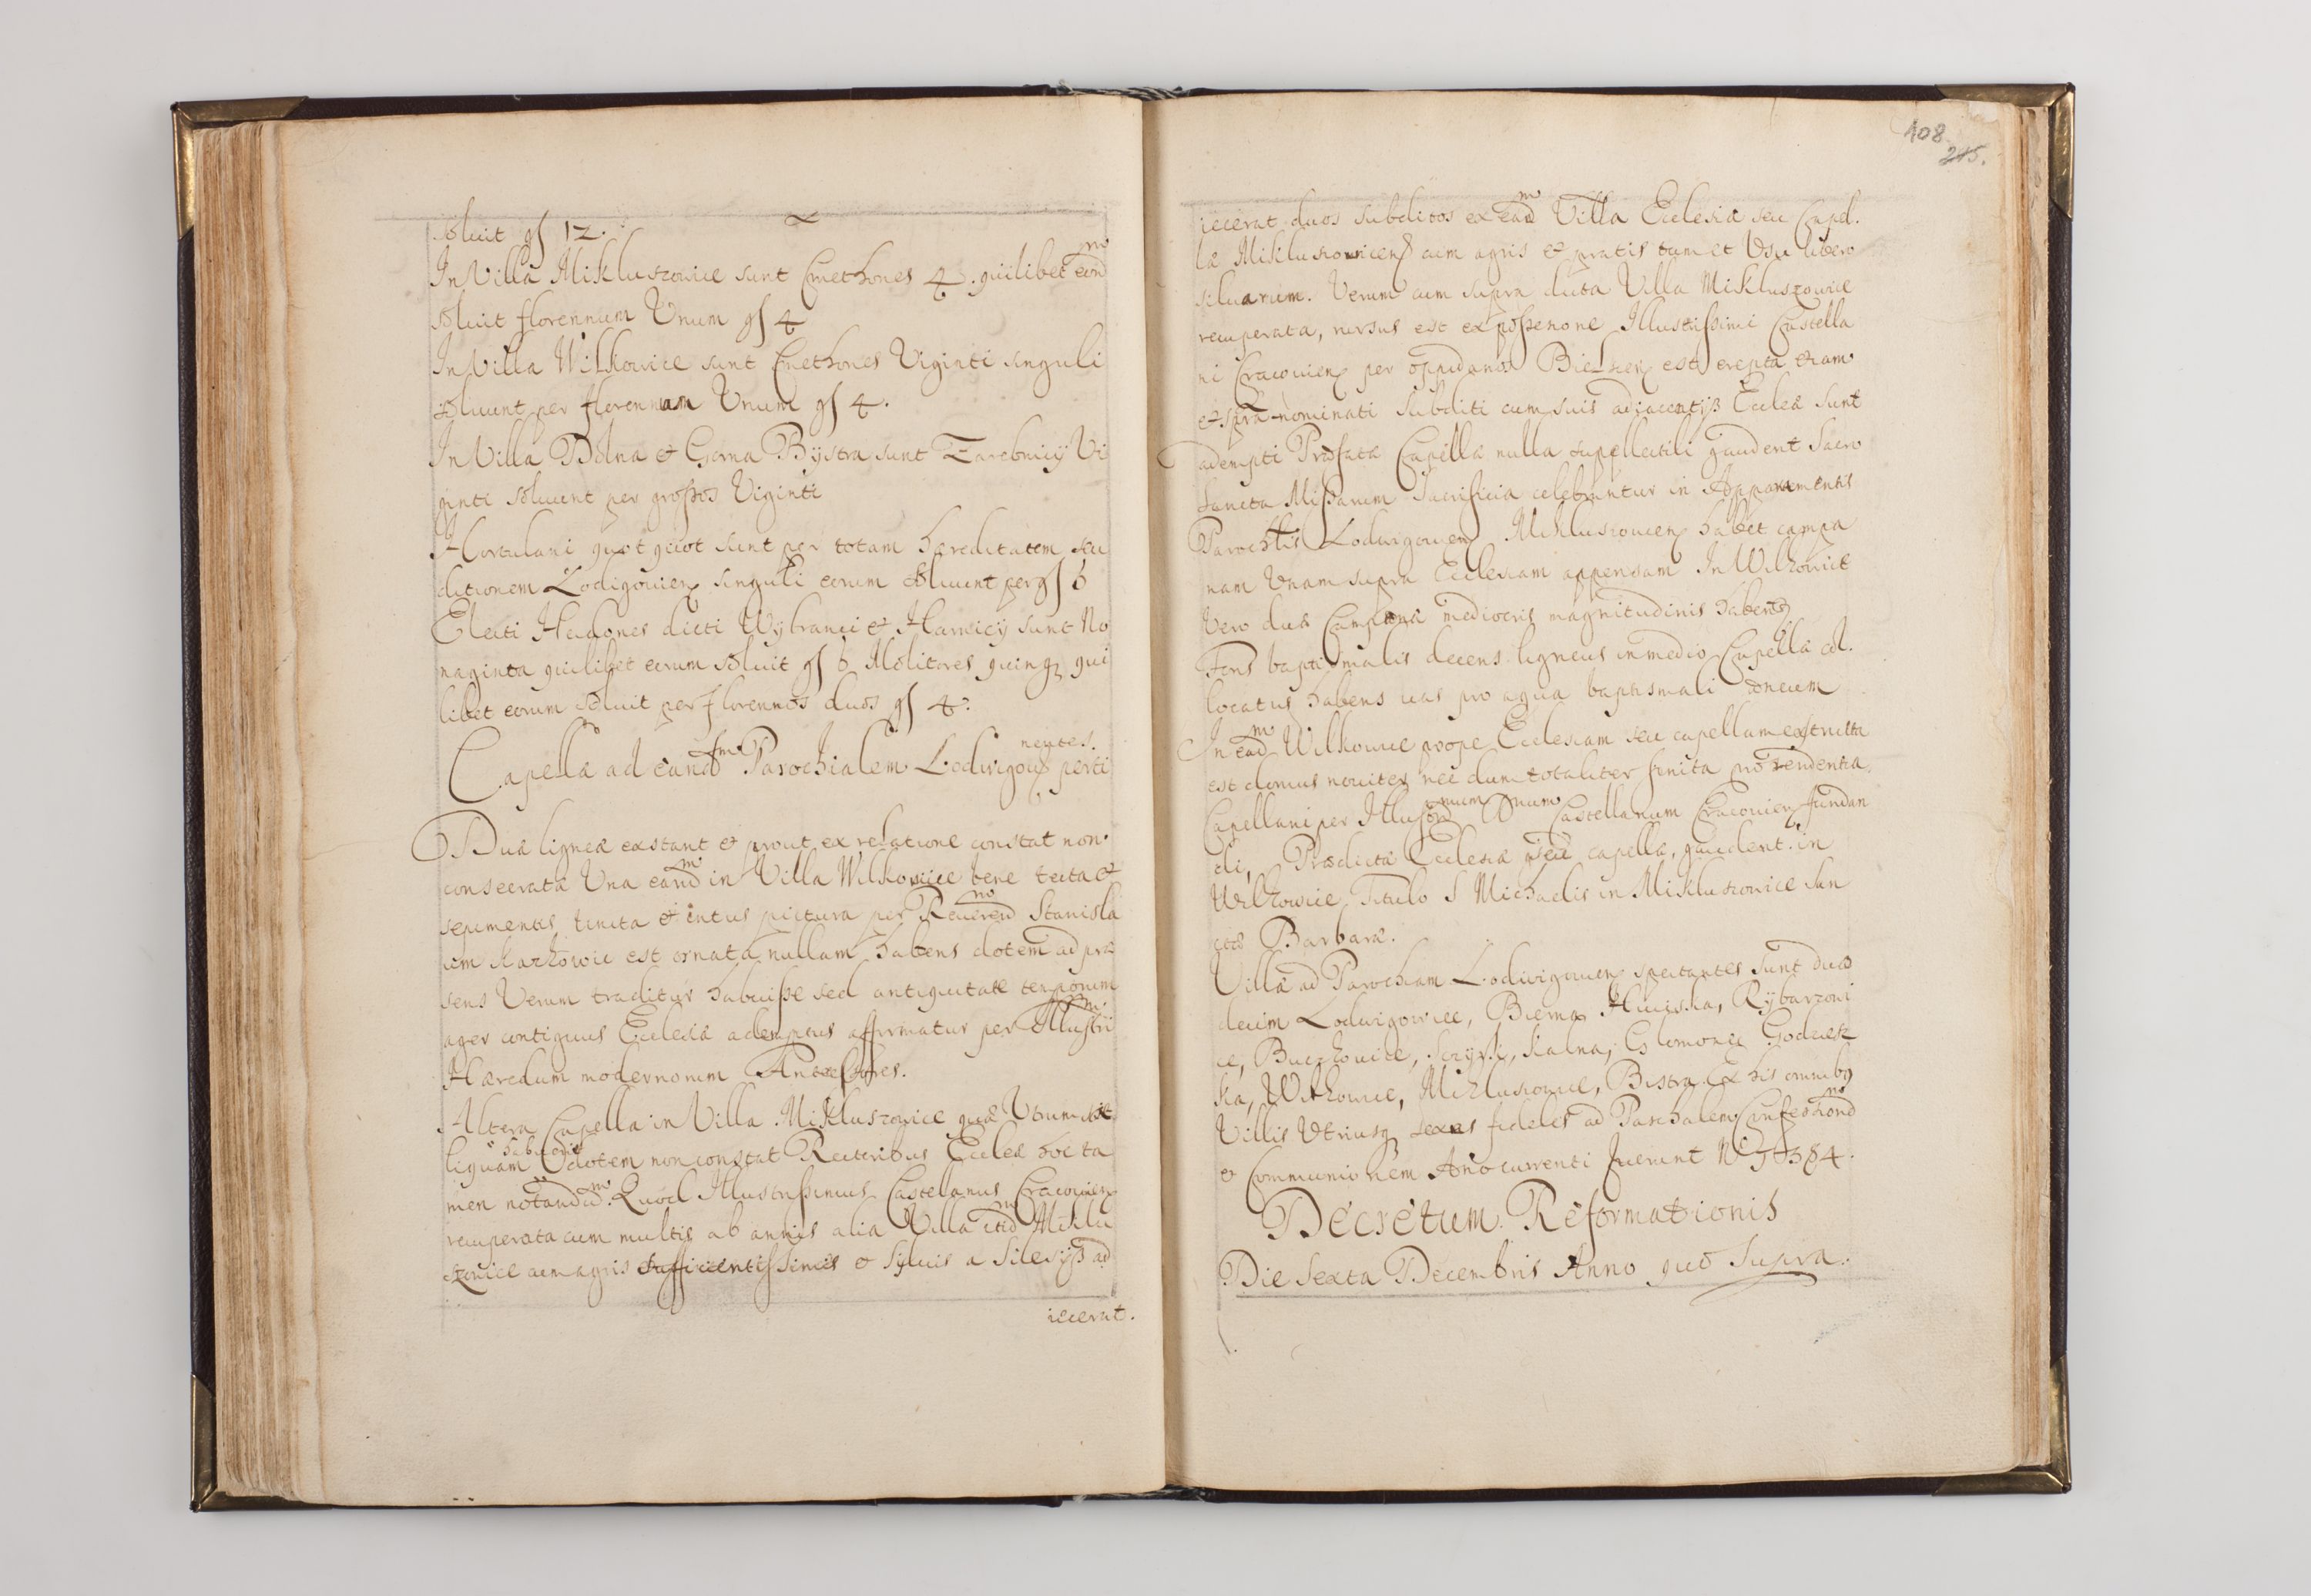 soluit gſ 12.
In Villa Mikluszowice sunt Cmethones 4. quilibet eorundem
soluit florennum Vnum gſ 4
In Villa Wilkowice sunt Cmethones Viginti singuli
soluunt per florennum Vnum gſ 4.
In Villa Dolna et Gorna Bystra sunt Zarebnicÿ Vi
ginti soluunt per groſsos Viginti
Hortulani quot quot sunt per totam hæreditatem seu
ditionem Lodigouien singuli eorum soluunt per gſ 6
Electi Haidones dicti Wybranci et Harnicÿ sunt No
naginta quilibet eorum soluit gſ 6 Molitores quinq qui
libet eorum soluit per florennos duos gſ 4.
Capellæ ad eandm Parochialem Lodwigou perti
nentes.
Duæ ligneæ exstant et prout ex relatione constat non
consecratæ Una eandm in Villa Wilkowice bene tecta et
sepimentis uncta et intus pictura per Reuerendm Stanisla
um Karkowic est ornata nullam habens dotem ad præ
sens Verum traditur habuiſse sed antiquitate temporum
ager contiguus Ecclesiæ ademptus affirmatur per Illustri
Hæredum modernorum Anteceſsores.
Altera Capella in Villa Mikluszowice quæ Utrum
liquam habuerit dotem non constat Rectoribus Ecclæ hoc ta
men notandum. Quod Illustriſsimus Castellanus Cracouien
recuperata cum multis ab annis alia Villa Miklu
szowice cum agris sufficientiſsimis et syluis a Silesijs ad
iecerat.
108
215.
iecerat duos subditos ex eadm Villa Ecclesiæ seu Capel.
læ Mikluszowicen cum agris et pratis tum et Vsu libero
siluarum. Verum cum supra dicta Villa Mikluszowice
recuperata, rursus est ex poſseſsione Illustriſsimi Castella
ni Cracouien per oppidanos Bielscen est erepta etiam
et supra nominati subditi cum suis adiacentijs Ecclæ sunt
adempti Præfatæ Capellæ nulla supellectili gaudent Sacro
Sancta Miſsarum Sacrificia celebrantur in Apparamentis
Parochlis Lodwigouien Mikluszouien habet campa
nam Unam supra Ecclesiam appensam In Wilkowice
Vero duæ Campanæ mediocris magnitudinis habent
Fons baptismalis decens ligneus in medio Capellæ col.
locatus habens uas pro aqua baptismali idoneum
In eadm Wilkowice prope Ecclesiam seu capellam extructa
est domus nouiter nec dum totaliter finita pro residentia
Capellani per Illustriſsimum Dnum Castellanum Cracouien fundan
di, Prædictæ Ecclesiæ seu capellæ, gaudent in
Wilkowice Titulo S Michaelis in Mikluszowice San
ctæ Barbaræ.
Villæ ad Parochiam Lodwigouien spectantes sunt duo
decim Lodwigowice, Biema, Huciska, Rÿbarzoui
ce, Buczkowice, Sczyrk, Kalna, Glemonec Godziesz
ka, Wilkowice, Mikluszowice, Bistra. Ex his omnibus
Villis Utriusq sexus fideles ad Paschalem Confeſsionem
et Communionem Año currenti fuerunt
Decretum Reformationis
Die Sexta Decembris Anno quo Supra.